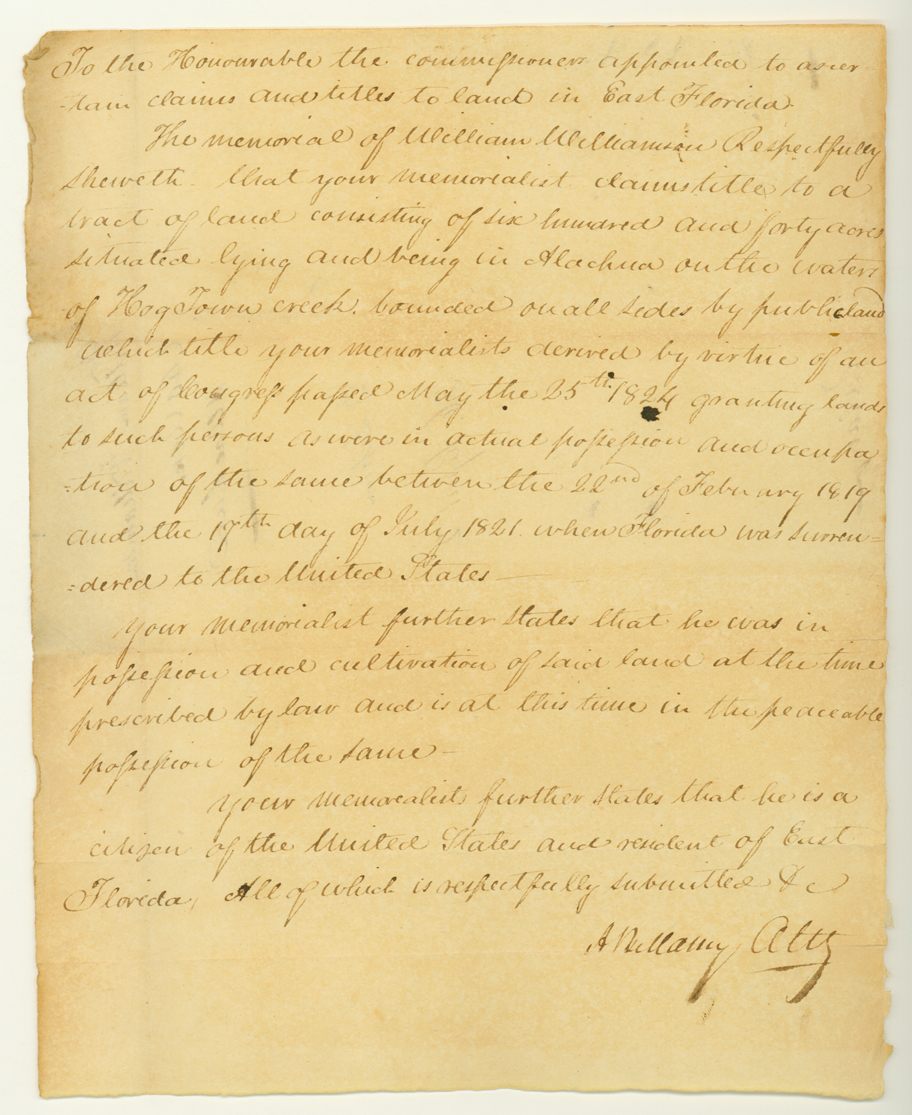 To the Honourable the commissioners appointed to ascer-
-tain claims and titles to land in East Florida
The memorial of William Williamson Respectfully
sheweth that your memorialist claims title to a
tract of land consisting of six hundred and forty acres
situated lying and being in Alachua on the waters
of Hog Town creek. bounded on all sides by public land
which title your memorialists derived by virtue of an
act of Congress passed May the 25th. 1824 granting lands
to such persons as were in actual possession and occupa
=tion of the same between the 22nd of February 1819
and the 17th day of July 1821. when Florida was surren=
=dered to the United States
Your memorialist further states that he was in
possession and cultivation of said land at the time
prescribed by law and is at this time in the peaceable
possession of the same
Your memorealist further states that he is a
citizen of the United States and resident of East
Florida, All of which is respectfully submitted &c
A Bellamy Atty